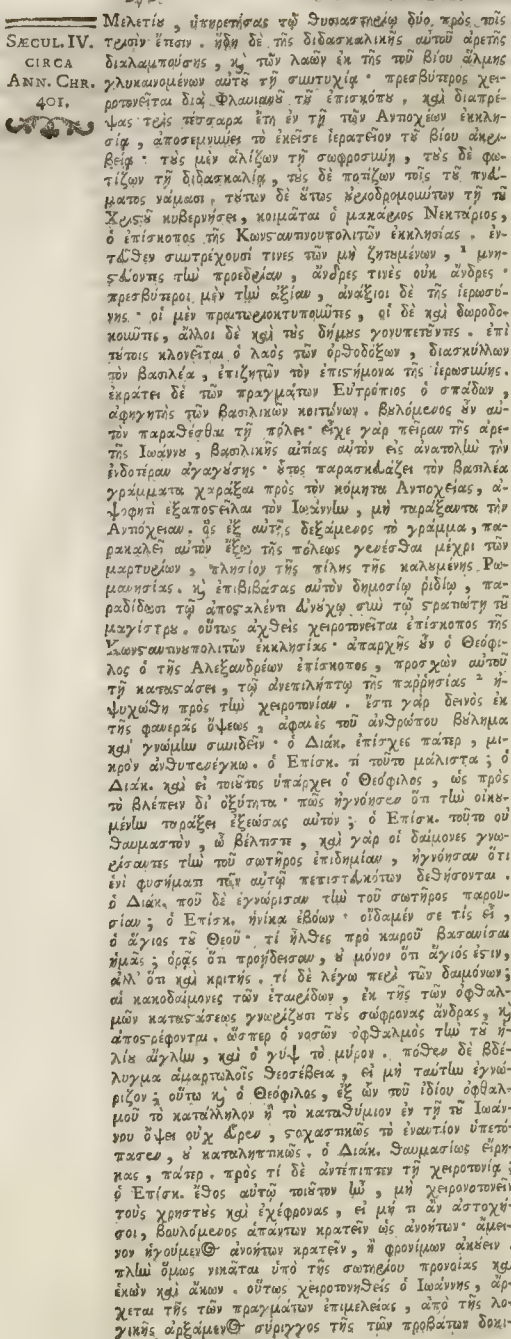 SÆCUL. IV.
CIRCA
ANN. CHR.
401.
Μελετίῳ, ὑπηρετήσας τῷ θυσιαστηρίῳ δύο πρὸς τοῖς
τρισὶν ἔτεσιν. ἤδη δὲ τῆς διδασκαλικῆς αὐτοῦ ἀρετῆς
διαλαμπούσης, καὶ τῶν λαῶν ἐκ τῆς τοῦ βίου ἅλμης
γλυκαινομένων αὐτοῦ τῇ συντυχίᾳ· πρεσβύτερος χει-
ροτονεῖται διὰ Φλαυιανοῦ τοῦ ἐπισκόπου, καὶ διαπρέ-
ψας τρὶς τέσσαρα ἔτη ἐν τῇ τῶν Ἀντιοχέων ἐκκλη-
σίᾳ, ἀποσεμνύνει τὸ ἐκεῖσε ἱερατεῖον τῇ τοῦ βίου ἀκρι-
βείᾳ· τοὺς μὲν ἁλίζων τῇ σωφροσύνῃ, τοὺς δὲ φω-
τίζων τῇ διδασκαλίᾳ, τοὺς δὲ ποτίζων τοῖς τοῦ πνεύ-
ματος νάμασι. τούτων δὲ οὕτως οὐριοδρομούντων τῇ τοῦ
Χριστοῦ κυβερνήσει, κοιμᾶται ὁ μακάριος Νεκτάριος,
ὁ ἐπίσκοπος τῆς Κωνσταντινουπολιτῶν ἐκκλησίας. ἐν-
τεῦθεν συντρέχουσί τινες τῶν μὴ ζητουμένων, ¹ μνη-
στεύοντες τὴν προεδρίαν, ἄνδρες τινὲς οὐκ ἄνδρες·
πρεσβύτεροι μὲν τὴν ἀξίαν, ἀνάξιοι δὲ τῆς ἱερωσύ-
νης· οἱ μὲν πραιτωριοκτυποῦντες, οἱ δὲ καὶ δωροδο-
κοῦντες, ἄλλοι δὲ καὶ τοὺς δήμους γονυπετοῦντες. ἐπὶ
τούτοις κλονεῖται ὁ λαὸς τῶν ὀρθοδόξων, διασκύλλων
τὸν βασιλέα, ἐπιζητῶν τὸν ἐπιστήμονα τῆς ἱερωσύνης.
ἐκράτει δὲ τῶν πραγμάτων Εὐτρόπιος ὁ σπάδων,
ἀφηγητὴς τῶν βασιλικῶν κοιτώνων. βουλόμενος οὖν αὐ-
τὸν παραθέσθαι τῇ πόλει· εἶχε γὰρ πεῖραν τῆς ἀρε-
τῆς Ἰωάννου, βασιλικῆς αἰτίας αὐτὸν εἰς ἀνατολὴν τὴν
ἐνδοτέραν ἀγαγούσης· οὗτος παρασκευάζει τὸν βασιλέα
γράμματα χαράξαι πρὸς τὸν κόμητα Ἀντιοχείας, ἀ-
ψοφητὶ ἐξαποστεῖλαι τὸν Ἰωάννην, μὴ ταράξαντα τὴν
Ἀντιόχειαν. ὃς ἐξ αὐτῆς δεξάμενος τὸ γράμμα, πα-
ρακαλεῖ αὐτὸν ἔξω τῆς πόλεως γενέσθαι μέχρι τῶν
μαρτυρίων, πλησίον τῆς πύλης τῆς καλουμένης Ρω-
μανησίας. καὶ ἐπιβιβάσας αὐτὸν δημοσίῳ ῥιδίῳ, πα-
ραδίδωσι τῷ ἀποσταλέντι εὐνούχῳ σὺν τῷ στρατιώτῃ τοῦ
μαγίστρου. οὕτως ἀχθεὶς χειροτονεῖται ἐπίσκοπος τῆς
Κωνσταντινουπολιτῶν ἐκκλησίας· ἀπαρχῆς οὖν ὁ Θεόφι-
λος ὁ τῆς Ἀλεξανδρέων ἐπίσκοπος, προσχὼν αὐτοῦ
τῇ καταστάσει, τῷ ἀνεπιλήπτῳ τῆς παῤῥησίας ² ἠ-
ψυχώθη πρὸς τὴν χειροτονίαν. ἔστι γὰρ δεινὸς ἐκ
τῆς φανερᾶς ὄψεως, ἀφανὲς τοῦ ἀνθρώπου βούλημα
καὶ γνώμην συνιδεῖν· ὁ Διάκ. ἐπίσχες πάτερ, μι-
κρὸν ἀνθυπενέγκω. ὁ Ἐπίσκ. τί τοῦτο μάλιστα; ὁ
Διάκ. καὶ εἰ τοιοῦτος ὑπάρχει ὁ Θεόφιλος, ὡς πρὸς
τὸ βλέπειν δι' ὀξύτητα· πῶς ἠγνόησεν ὅτι τὴν οἰκου-
μένην ταράξει ἐξεώσας αὐτόν; ὁ Ἐπίσκ. τοῦτο οὐ
θαυμαστὸν, ὦ βέλτιστε, καὶ γὰρ οἱ δαίμονες γνω-
ρίσαντες τὴν τοῦ σωτῆρος ἐπιδημίαν, ἠγνόησαν ὅτι
ἑνὶ φυσήματι τῶν αὐτῷ πεπιστευκότων δεθήσονται.
ὁ Διάκ. ποῦ δὲ ἐγνώρισαν τὴν τοῦ σωτῆρος παρου-
σίαν; ὁ Ἐπίσκ. ἡνίκα ἐβόων· οἴδαμέν σε τίς εἶ,
ὁ ἅγιος τοῦ Θεοῦ· τί ἦλθες πρὸ καιροῦ βασανίσαι
ἡμᾶς; ὁρᾷς ὅτι προῄδεισαν, οὐ μόνον ὅτι ἅγιός ἐστιν,
ἀλλ' ὅτι καὶ κριτής. τί δὲ λέγω περὶ τῶν δαιμόνων;
αἱ κακοδαίμονες τῶν ἑταιρίδων, ἐκ τῆς τῶν ὀφθαλ-
μῶν καταστάσεως γνωρίζουσι τοὺς σώφρονας ἄνδρας, καὶ
ἀποστρέφονται. ὥσπερ ὁ νοσῶν ὀφθαλμὸς τὴν τοῦ ἡ-
λίου αἴγλην, καὶ ὁ γὺψ τὸ μύρον. πόθεν δὲ βδέ-
λυγμα ἁμαρτωλοῖς θεοσέβεια, εἰ μὴ ταύτην ἐγνώ-
ριζον; οὕτω καὶ ὁ Θεόφιλος, ἐξ ὧν τοῦ ἰδίου ὀφθαλ-
μοῦ τὸ κατάλληλον ἢ τὸ καταθύμιον ἐν τῇ τοῦ Ἰωάν-
νου ὄψει οὐχ εὗρεν, στοχαστικῶς τὸ ἐναντίον ὑπετό-
πασεν, οὐ καταληπτικῶς. ὁ Διάκ. θαυμασίως εἴρη-
κας, πάτερ. πρὸς τί δὲ ἀντέπιπτεν τῇ χειροτονίᾳ;
ὁ Ἐπίσκ. ἔθος αὐτῷ τοιοῦτον ἦν, μὴ χειροτονεῖν
τοὺς χρηστοὺς καὶ ἐχέφρονας, εἰ μή τι ἂν ἀστοχή-
σοι, βουλόμενος ἁπάντων κρατεῖν ὡς ἀνοήτων· ἄμει-
νον ἡγούμενος ἀνοήτων κρατεῖν, ἢ φρονίμων ἀκούειν.
πλὴν ὅμως νικᾶται ὑπὸ τῆς σωτηρίου προνοίας καὶ
ἑκὼν καὶ ἄκων. οὕτως χειροτονηθεὶς ὁ Ἰωάννης, ἄρ-
χεται τῆς τῶν πραγμάτων ἐπιμελείας, ἀπὸ τῆς λο-
γικῆς ἀρξάμενος σύριγγος τῆς τῶν προβάτων δοκι-